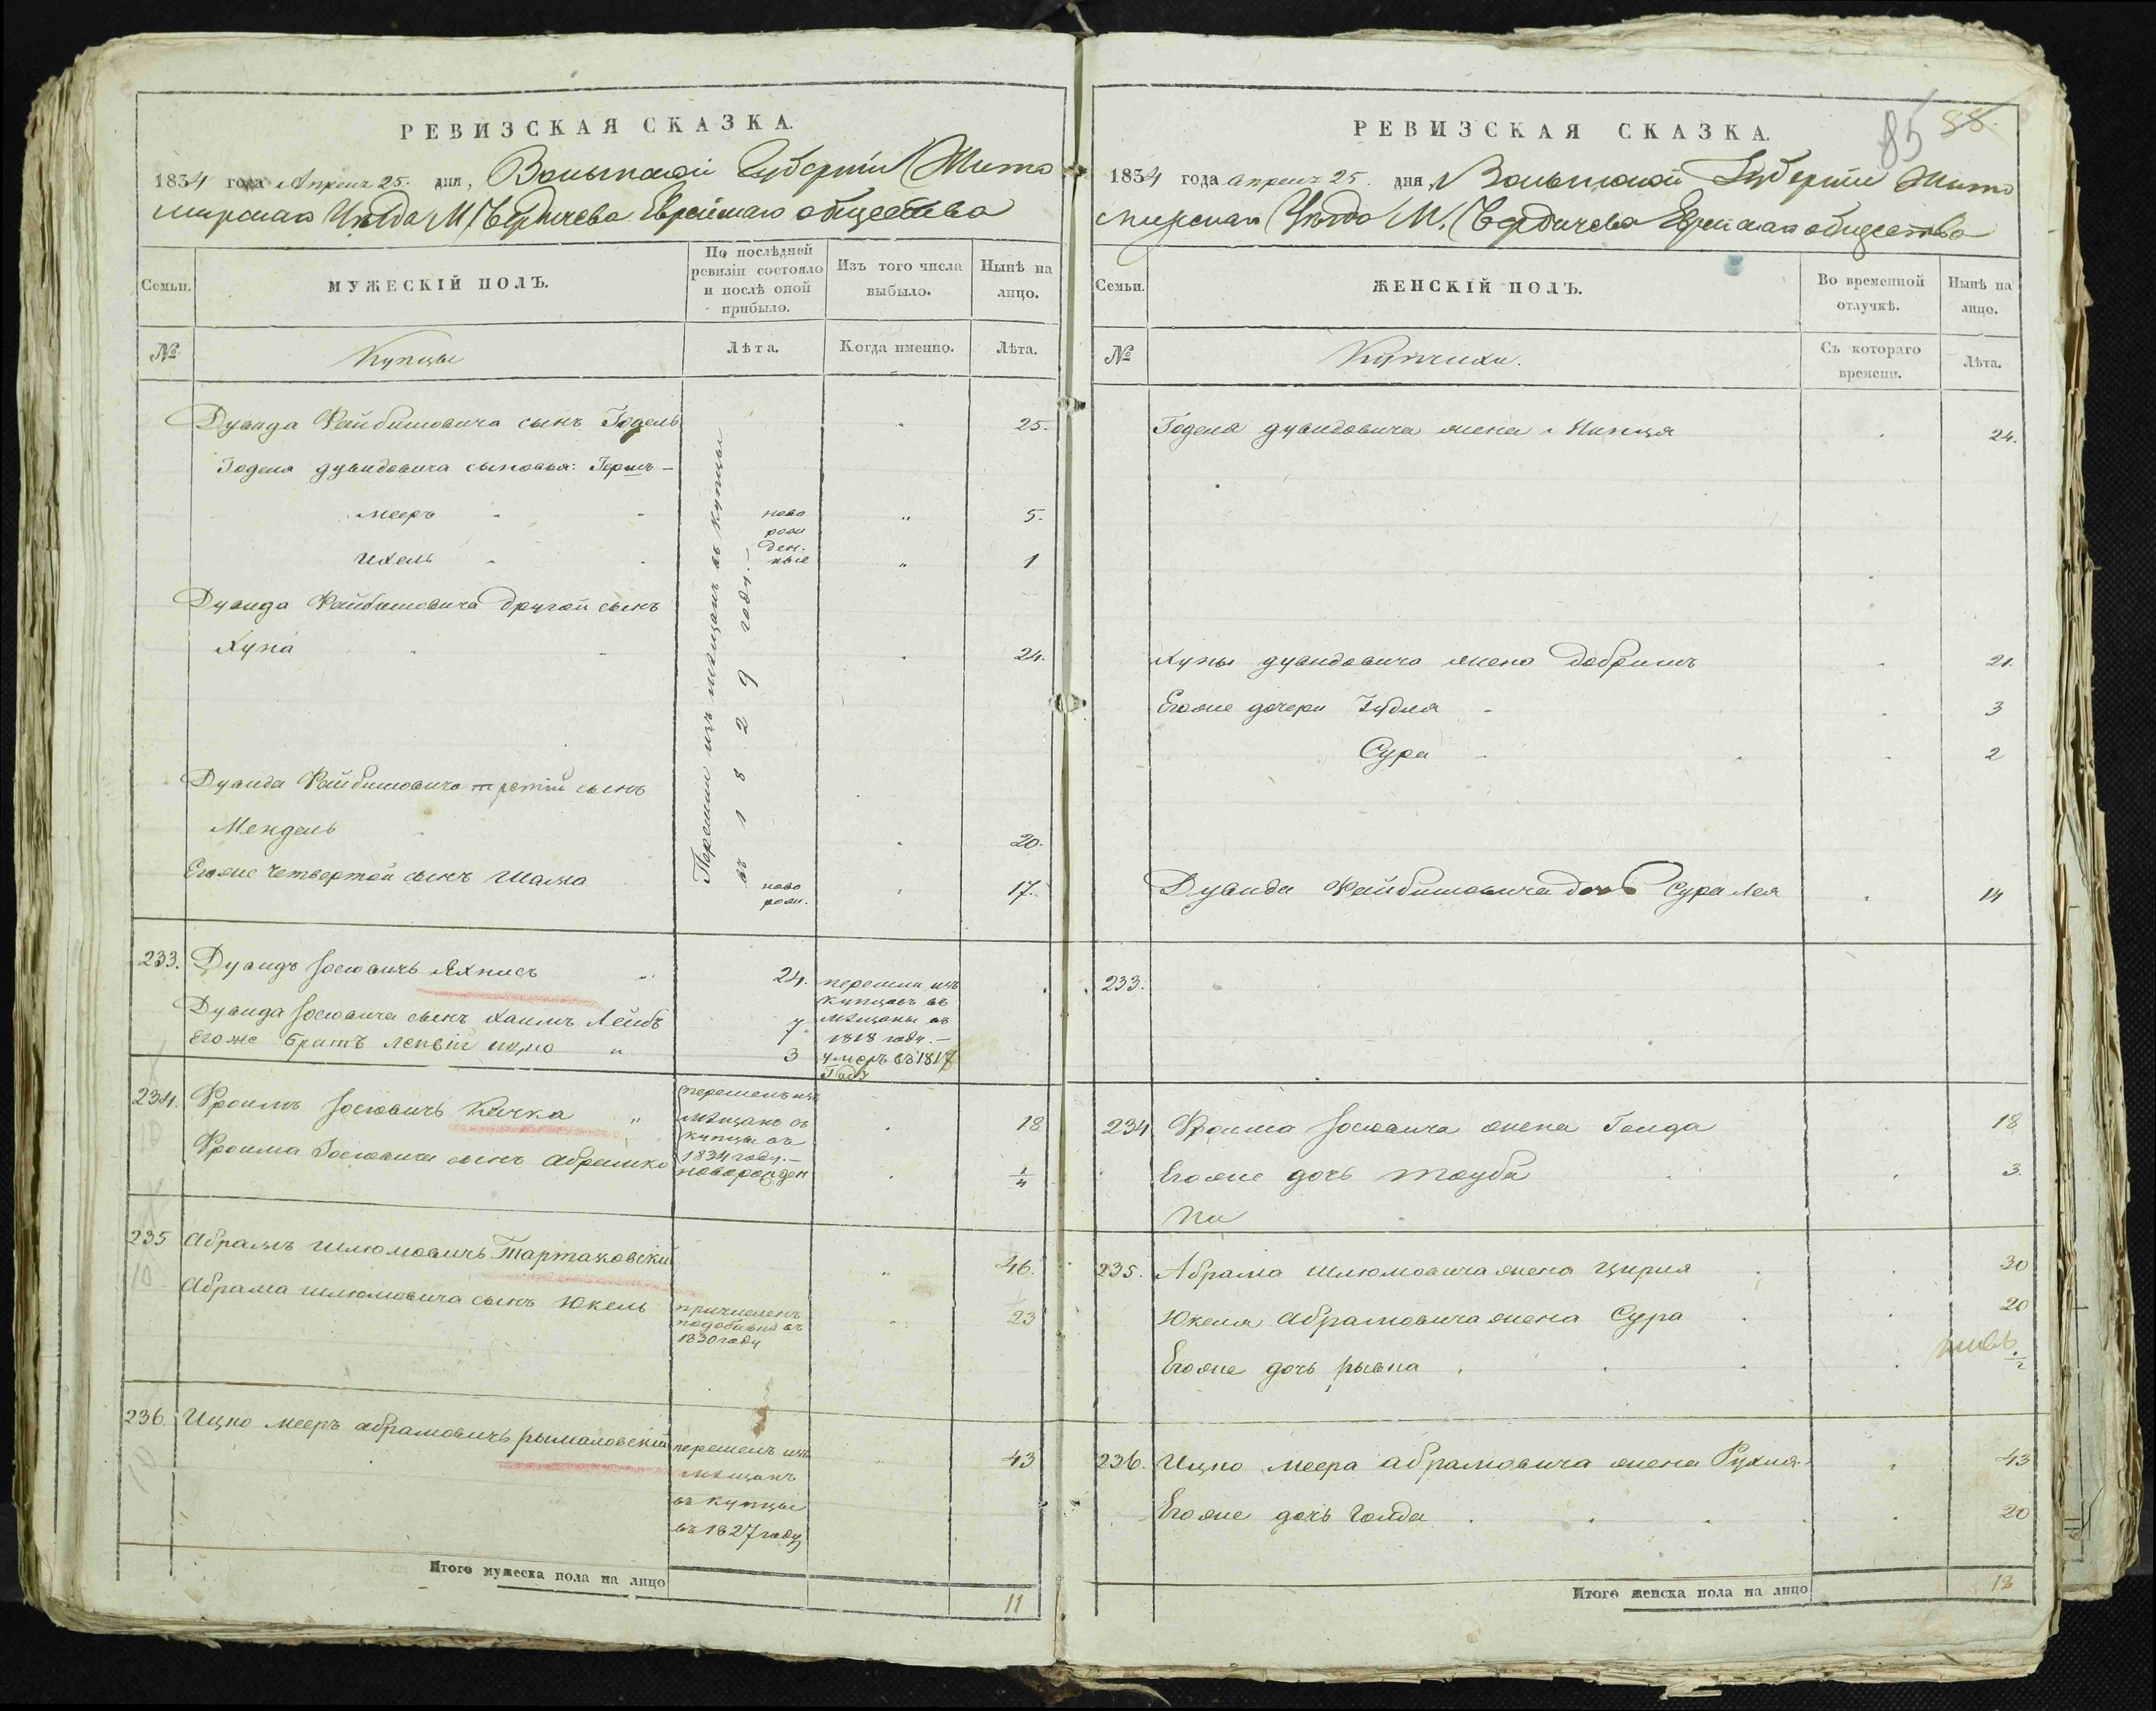 РЕВИЗСКАЯ СКАЗКА.
1834 года Апреля 25. дня, Волынской Губерніи Жито
мирскаго Уѣзда М. Бердичева Еврейскаго общества
Семьи.
МУЖЕСКІЙ ПОЛЪ.
По послѣдней
ревизіи состояло
и послѣ оной
прибыло.
Изъ того числа
выбыло.
Нынѣ на
лицо.
№
Купцы
Лѣта.
Когда именно.
Лѣта.
Дувида Файбишовича сынъ Годель 25.
Годеля дувидовича сыновья: Гершъ –
мееръ 5.
ново
рож
ден.
ные
Ихель 1
Дувида Файбишовича другой сынъ
Хуна 24.
Дувида Файбишовича третій сынъ
Мендель 20.
Егоже четвертой сынъ Шама 17.
ново
рож.
Перешли изъ мѣщанъ въ купцы
въ 1829 году. –
233. Дувидъ Іосіовичъ Яхнисъ 24.
перешли изъ
купцовъ въ
мѣщаны въ
1818 году. –
Дувида Іосіовича сынъ Хаимъ Лейбъ 7
Егоже Братъ Ицко 3
умеръ въ 1817
Году
234. Фроимъ Іосіовичъ Качка 18
перешелъ изъ
мѣщанъ въ
купцы въ
1834 году. –
Фроима Іосіовича сынъ Абрамко 1/4
новорожден
235 Абрамъ Шлюмовичъ Тартаковскій 46.
Абрама Шлюмовича сынъ Юкель 23
причисленъ
въ
1830 году
236. Ицко мееръ абрамовичъ рымаловскій 43
перешелъ изъ
мѣщанъ
въ купцы
въ 1827 году
Итого мужеска пола на лицо 11
85 88.
РЕВИЗСКАЯ СКАЗКА.
1834 года апреля 25. дня, Волынской Губерніи Жито
мирскаго Уѣзда М. Бердичева Еврейскаго общества
Семьи.
ЖЕНСКІЙ ПОЛЪ.
Во временной
отлучкѣ.
Нынѣ на
лицо.
№
Купчихи.
Съ котораго
времени.
Лѣта.
Годеля дувидовича жена 24.
Хуны дувидовича жена Добришъ 21.
Егоже дочери Гудля 3
Сура 2
Дувида Файбишовича дочь Сура Лея 14
233.
234 Фроима Іосіовича жена Голда 18
Егоже дочь Тауба 3.
235. Абрама Шлюмовича жена Цирля 30
Юкеля Абрамовича жена Сура 20
Егоже дочь рывка 1/2
236. Ицко меера Абрамовича жена Рухля 43
Егоже дочь Голда 20
Итого женска пола на лицо 12